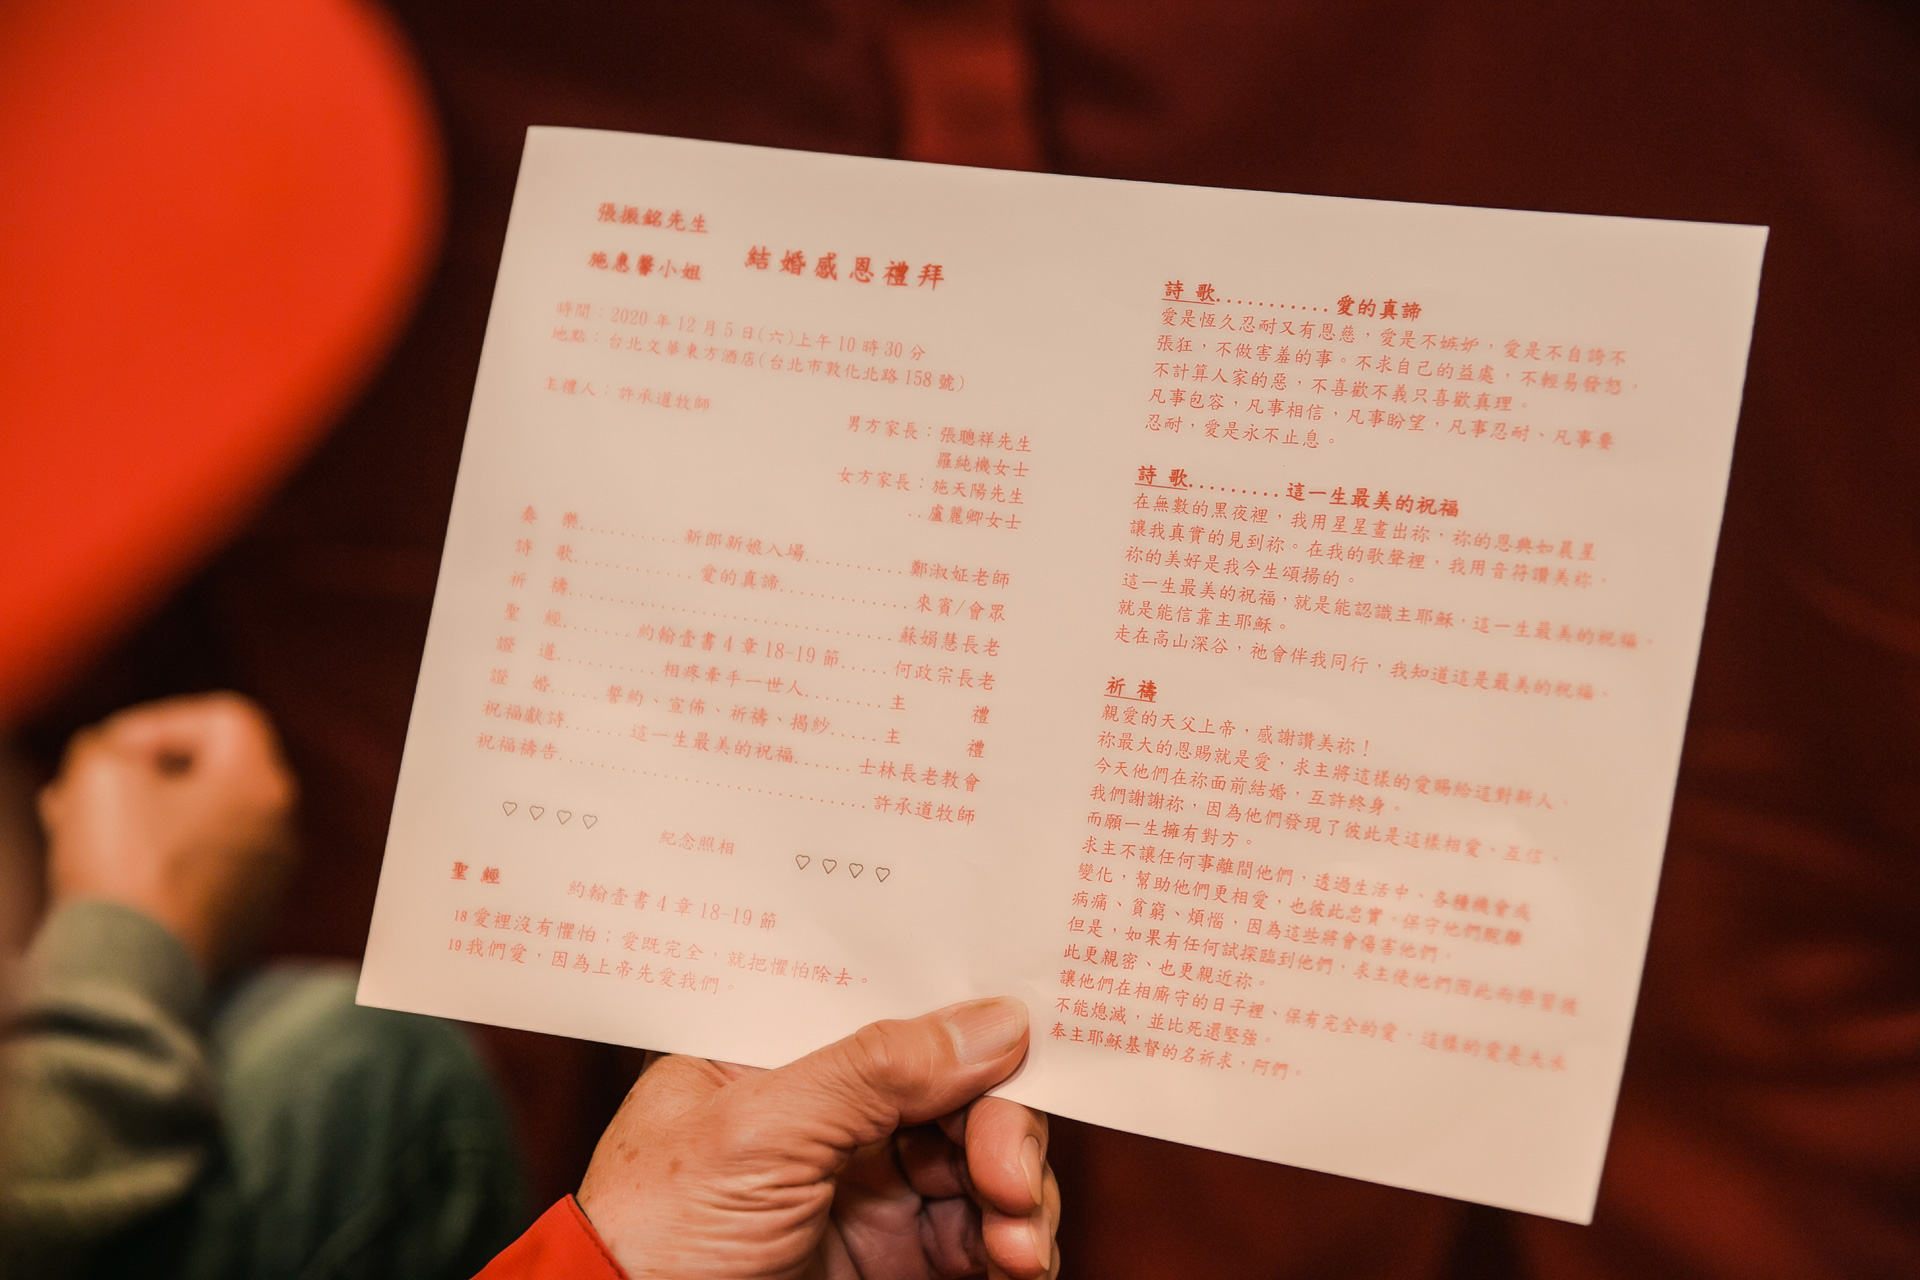 張振銘先生
施惠馨小姐
結婚感恩禮拜
時間：2020 年 12 月 5 日(六)上午 10 時 30 分
地點：台北文華東方酒店(台北市敦化北路 158 號)
主禮人：許承道牧師
男方家長：張聰祥先生
羅純機女士
女方家長：施天陽先生
..盧麗卿女士
奏 樂..........新郎新娘入場..........鄭淑姃老師
詩 歌............愛的真諦.............來賓/會眾
祈 禱................................蘇娟慧長老
聖 經.......約翰壹書 4 章 18-19 節.....何政宗長老
證 道..........相疼牽手一世人........主 禮
證 婚.....誓約、宣佈、祈禱、揭紗.....主 禮
祝福獻詩......這一生最美的祝福......士林長老教會
祝福禱告...............................許承道牧師
♡♡♡♡ 紀念照相 ♡♡♡♡
聖 經 約翰壹書 4 章 18-19 節
18 愛裡沒有懼怕；愛既完全，就把懼怕除去。
19 我們愛，因為上帝先愛我們。
詩 歌...........愛的真諦
愛是恆久忍耐又有恩慈，愛是不嫉妒，愛是不自誇不
張狂，不做害羞的事。不求自己的益處，不輕易發怒。
不計算人家的惡，不喜歡不義只喜歡真理。
凡事包容，凡事相信，凡事盼望，凡事忍耐、凡事要
忍耐，愛是永不止息。
詩 歌.........這一生最美的祝福
在無數的黑夜裡，我用星星畫出祢，祢的恩典如晨星
讓我真實的見到祢。在我的歌聲裡，我用音符讚美祢，
祢的美好是我今生頌揚的。
這一生最美的祝福，就是能認識主耶穌，這一生最美的祝福，
就是能信靠主耶穌。
走在高山深谷，祂會伴我同行，我知道這是最美的祝福。
祈 禱
親愛的天父上帝，感謝讚美祢！
祢最大的恩賜就是愛，求主將這樣的愛賜給這對新人，
今天他們在祢面前結婚，互許終身。
我們謝謝祢，因為他們發現了彼此是這樣相愛、互信、
而願一生擁有對方。
求主不讓任何事離間他們，透過生活中、各種機會或
變化，幫助他們更相愛，也彼此忠實。保守他們脫離
病痛、貧窮、煩惱，因為這些將會傷害他們。
但是，如果有任何試探臨到他們，求主使他們因此而學習彼
此更親密、也更親近祢。
讓他們在相廝守的日子裡、保有完全的愛。這樣的愛是大水
不能熄滅，並比死還堅強。
奉主耶穌基督的名祈求，阿們。